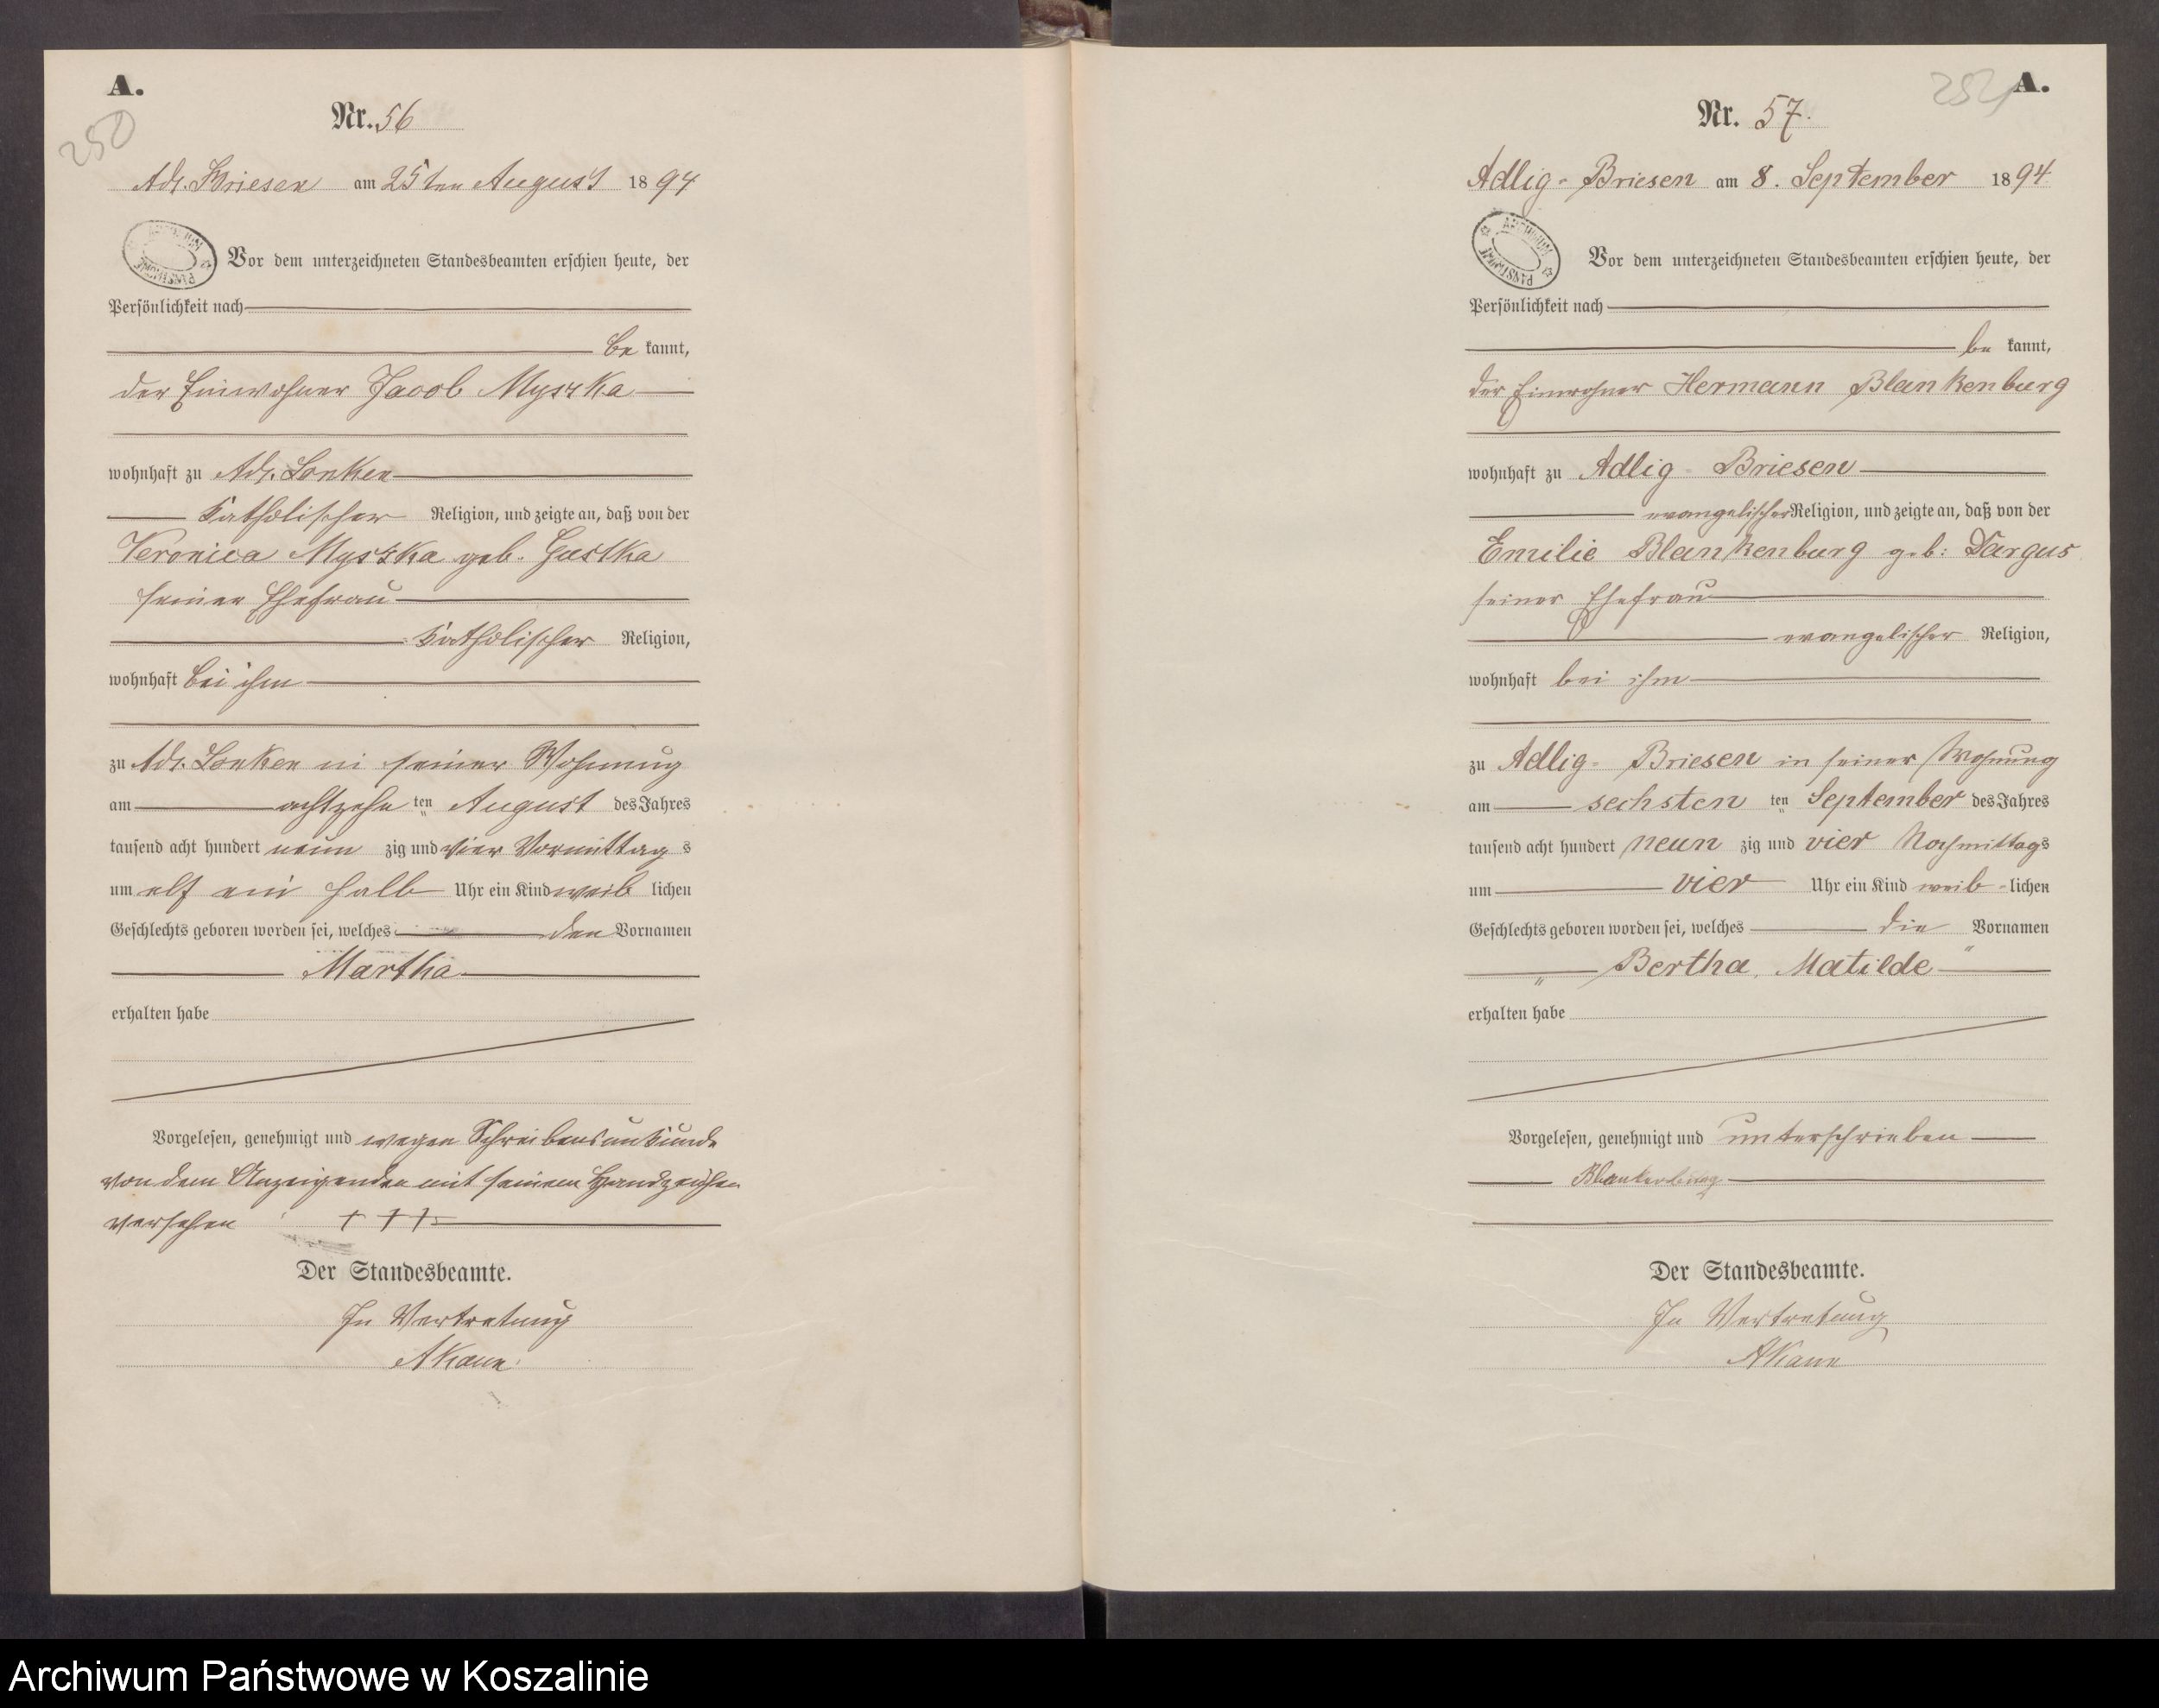 A.
250
Nr. 56
Adl. Briesen am 25ten August 1894
Vor dem unterzeichneten Standesbeamten erschien heute, der
Persönlichkeit nach
be kannt,
der Einwohner Jacob Myszka
wohnhaft zu Adl. Lonken
katholischer Religion, und zeigte an, daß von der
Veronica Myszka geb.
seiner Ehefrau
katholischer Religion,
wohnhaft bei ihm
zu Adl. Lonken in seiner Wohnung
am achtzehn ten August des Jahres
tausend acht hundert neun zig und vier Vormittag s
um elf ein halb Uhr ein Kind weib lichen
Geschlechts geboren worden sei, welches den Vornamen
Martha
erhalten habe
Vorgelesen, genehmigt und wegen Schreibensunkunde
von dem Anzeigenden mit seinem Handzeichen
versehen +++
Der Standesbeamte.
In Vertretung
AKann
A.
Nr. 57.
Adlig-Briesen am 8. September 1894
ARCHIWUM PAŃSTWOWE
Vor dem unterzeichneten Standesbeamten erschien heute, der
Persönlichkeit nach
be kannt,
der Einwohner Hermann Blankenburg
wohnhaft zu Adlig-Briesen
evangelischer Religion, und zeigte an, daß von der
Emilie Blankenburg geb: Dargus
seiner Ehefrau
evangelischer Religion,
wohnhaft bei ihm
zu Adlig-Briesen in seiner Wohnung
am sechsten ten September des Jahres
tausend acht hundert neun zig und vier Nachmittags
um vier Uhr ein Kind weib-lichen
Geschlechts geboren worden sei, welches die Vornamen
„Bertha, Matilde"
erhalten habe
Vorgelesen, genehmigt und unterschrieben
Blankenburg
Der Standesbeamte.
In Vertretung
AKann
Archiwum Państwowe w Koszalinie